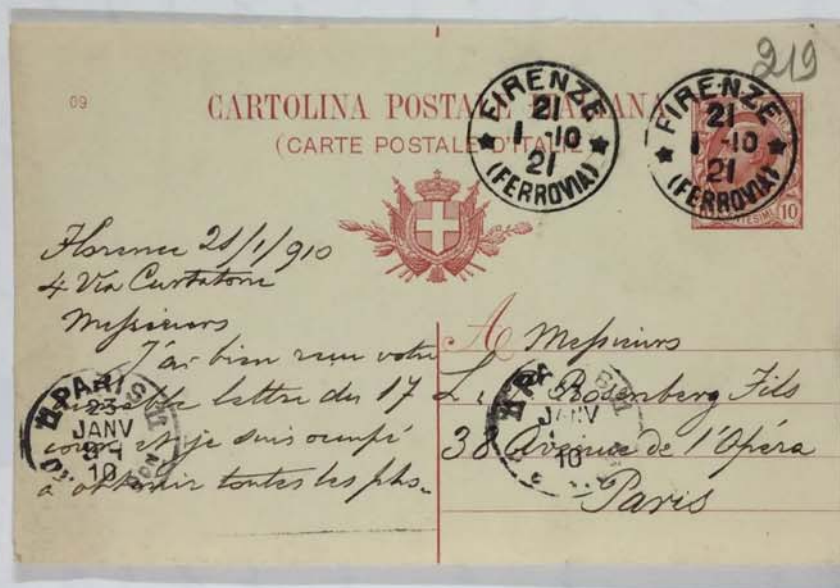 219
09
CARTOLINA POSTALE ITALIANA
(CARTE POSTALE D'ITALIE)
FIRENZE
21
1-10
21
(FERROVIA)
FIRENZE
21
1-10
21
(FERROVIA)
CENTESIMI 10
Florence 21/1/910
4 Via Curtatone
Messieurs
J'ai bien reçu votre
lettre du 17
et je suis occupé
à obtenir toutes les pho-
PARIS II
23
JANV
10
A Messieurs
L. Rosenberg Fils
38 Avenue de l'Opéra
Paris
JANV
10